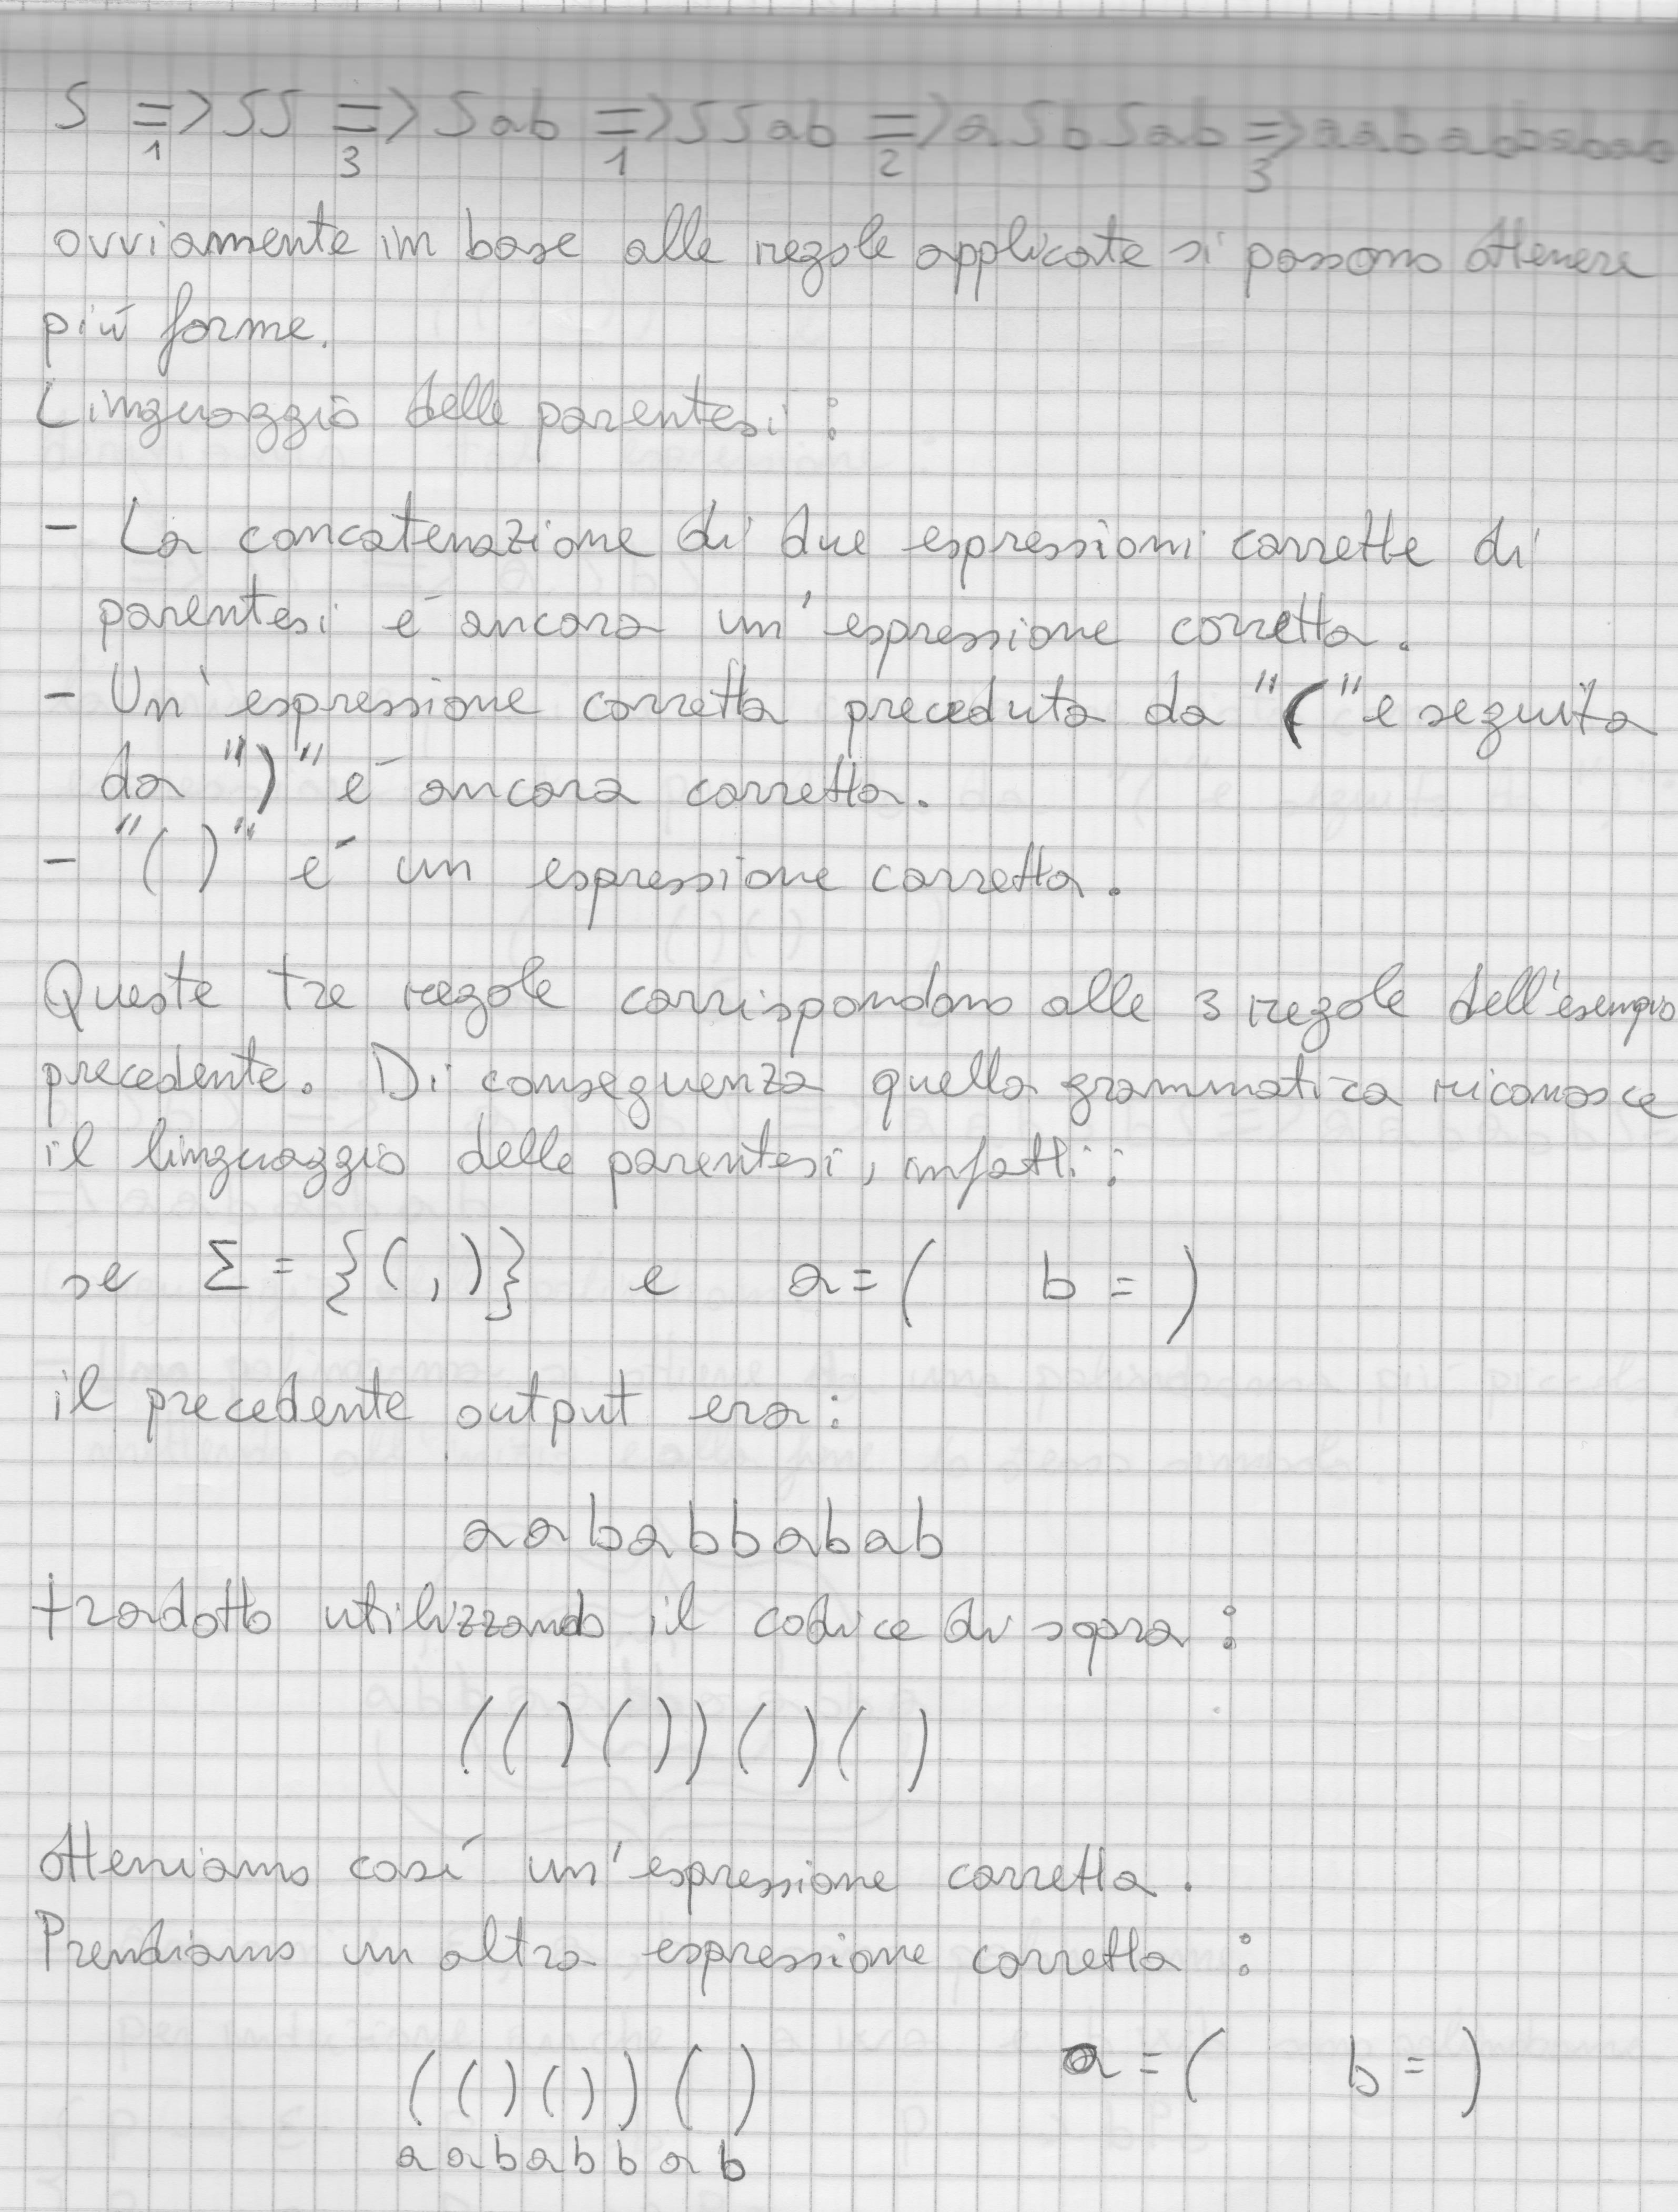 S =>1 SS =>3 Sab =>1 SSab =>2 aSbSab =>3
ovviamente in base alle regole applicate si possono ottenere
più forme.
Linguaggio delle parentesi :
- La concatenazione di due espressioni corrette di
parentesi é ancora un'espressione corretta.
- Un'espressione corretta preceduta da "(" e seguita
da ")" é ancora corretta.
- "( )" é un espressione corretta.
Queste tre regole corrispondono alle 3 regole dell'esempio
precedente. Di conseguenza quella grammatica riconosce
il linguaggio delle parentesi, infatti :
se Σ = {(,)} e a = ( b = )
il precedente output era :
aababbabab
tradotto utilizzando il codice di sopra :
(()())()()
Otteniamo cosí un'espressione corretta.
Prendiamo un altra espressione corretta :
(()())() a = ( b = )
aababbab